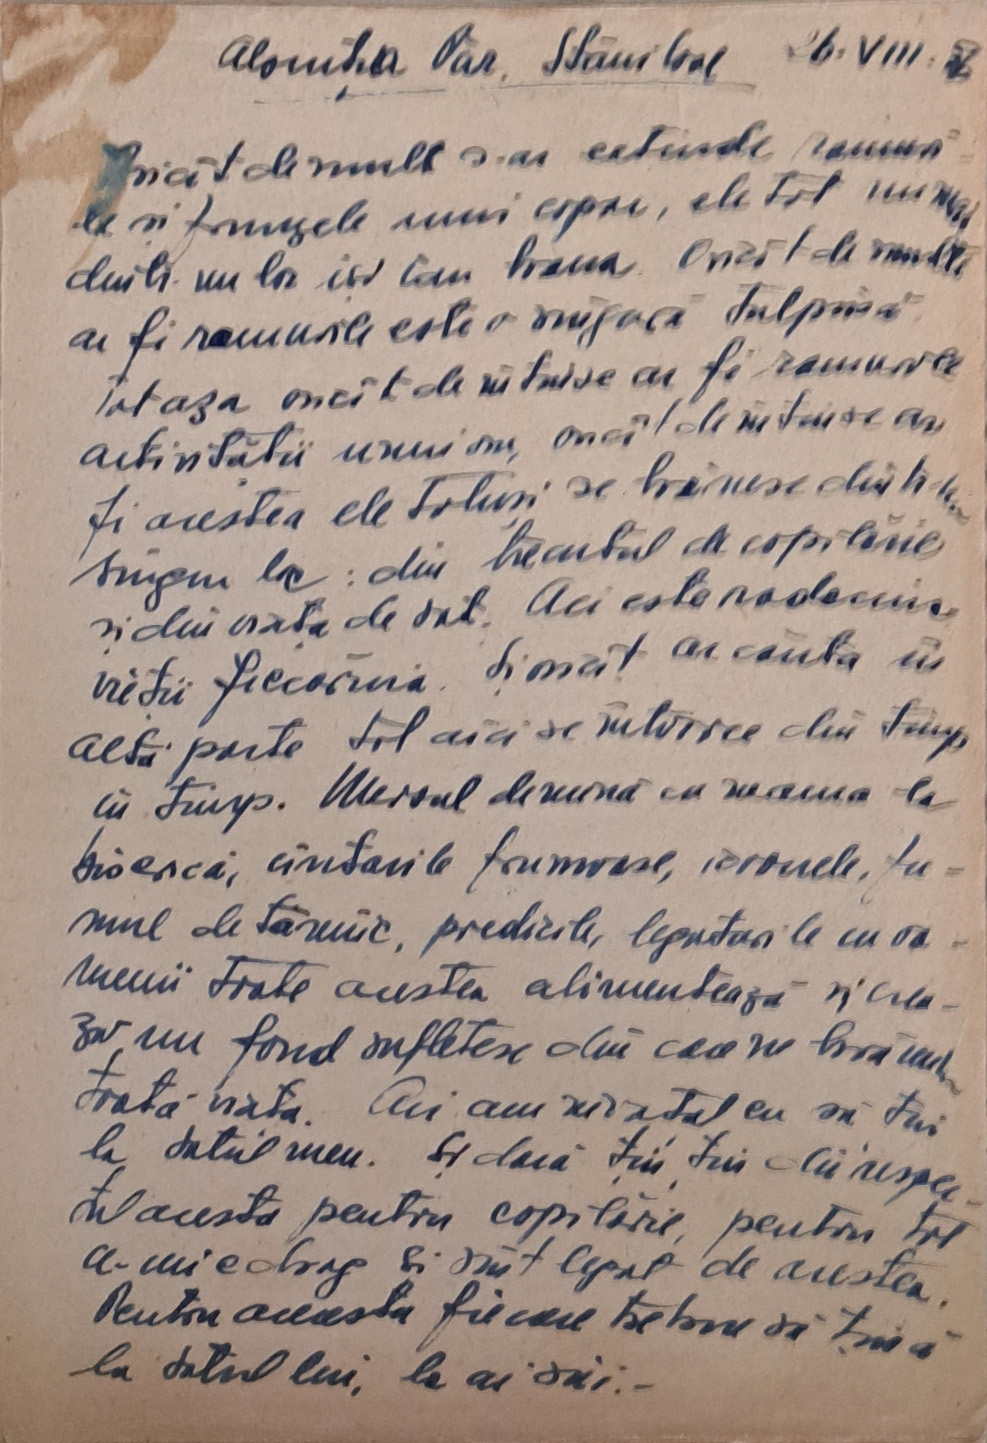 Alocuția Păr. Stăniloae 26. VIII.
Oricât de mult s-ar extinde ramuri-
le și frunzele unui copac, ele tot numai
dintr-un loc își iau hrana. Oricât de multe
ar fi ramurile este o singură tulpină.
Tot așa oricât de întinse ar fi ramurile
activității unui om, oricât de întinse ar
fi acestea ele totuși se hrănesc dintr-un
singur loc: din trecutul de copilărie
și din viața de sat. Aci este rădăcina
vieții fiecăruia. Și oricât ar căuta în
altă parte tot aici se întoarce din timp
în timp. Mersul de mână cu mama la
biserică, cîntările frumoase, icoanele, fu-
mul de tămîie, predicile, legăturile cu oa-
menii toate acestea alimentează și crea-
ză un fond sufletesc din care ne hrănim
toată viața. Aci am învățat eu să țin
la satul meu. Și dacă țin, țin din respec-
tul acesta pentru copilărie, pentru tot
ce mi-e drag și sînt legat de acestea.
Pentru aceasta fiecare trebuie să țină
la satul lui, la ai săi.-